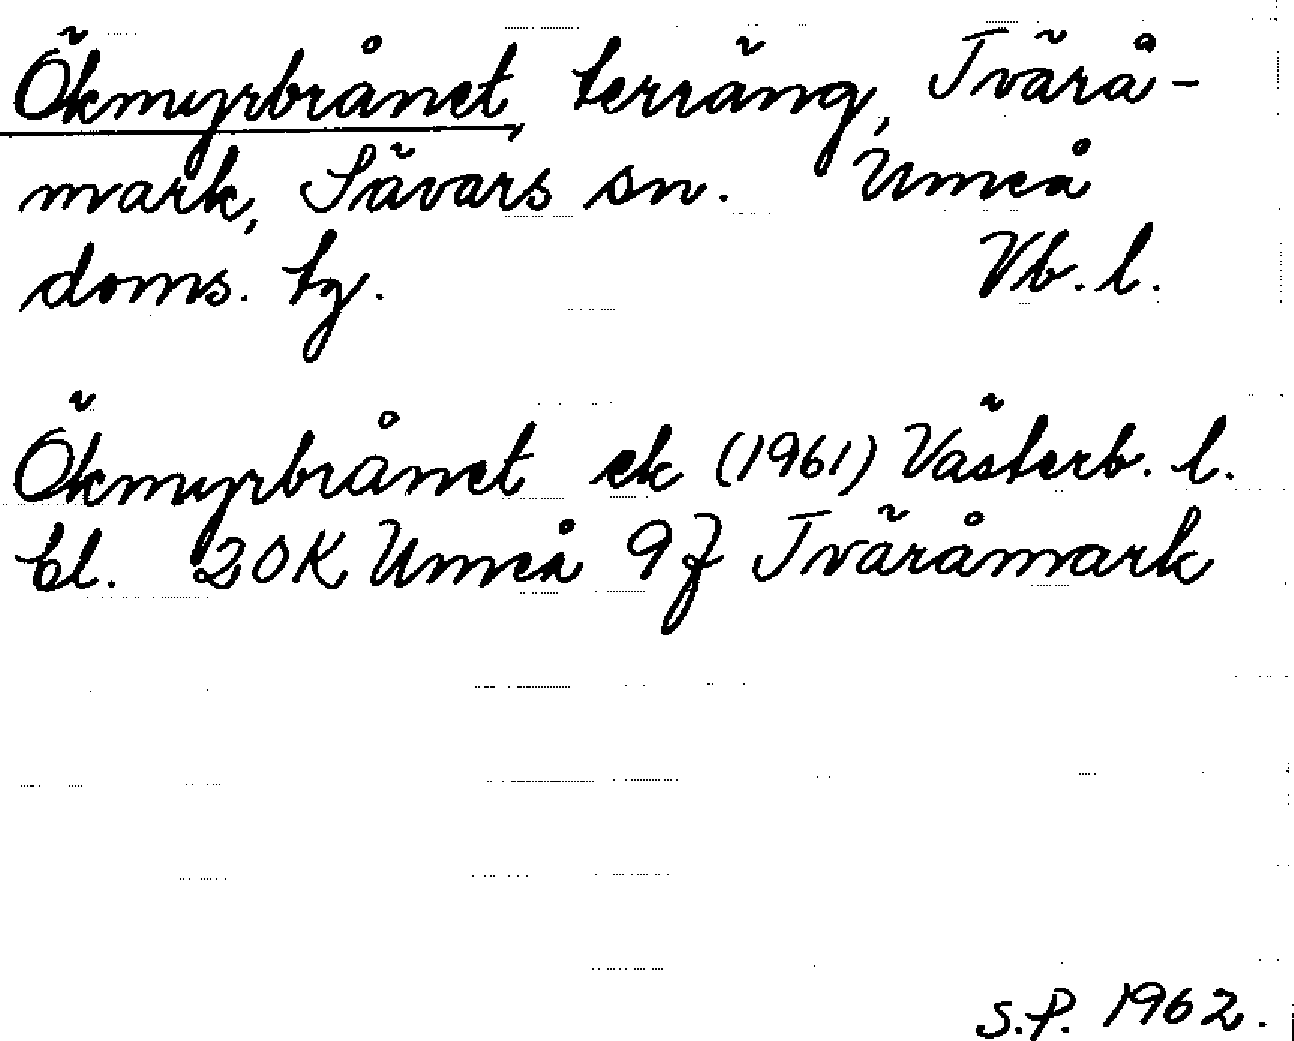 Ökmyrbrånet, terräng, Tvärå-
mark, Sävars sn. Umeå
doms. tg. Vb. l.
Ökmyrbrånet ek (1961) Västerb. l.
bl. 20K Umeå 9f Tväråmark
S.P. 1962.